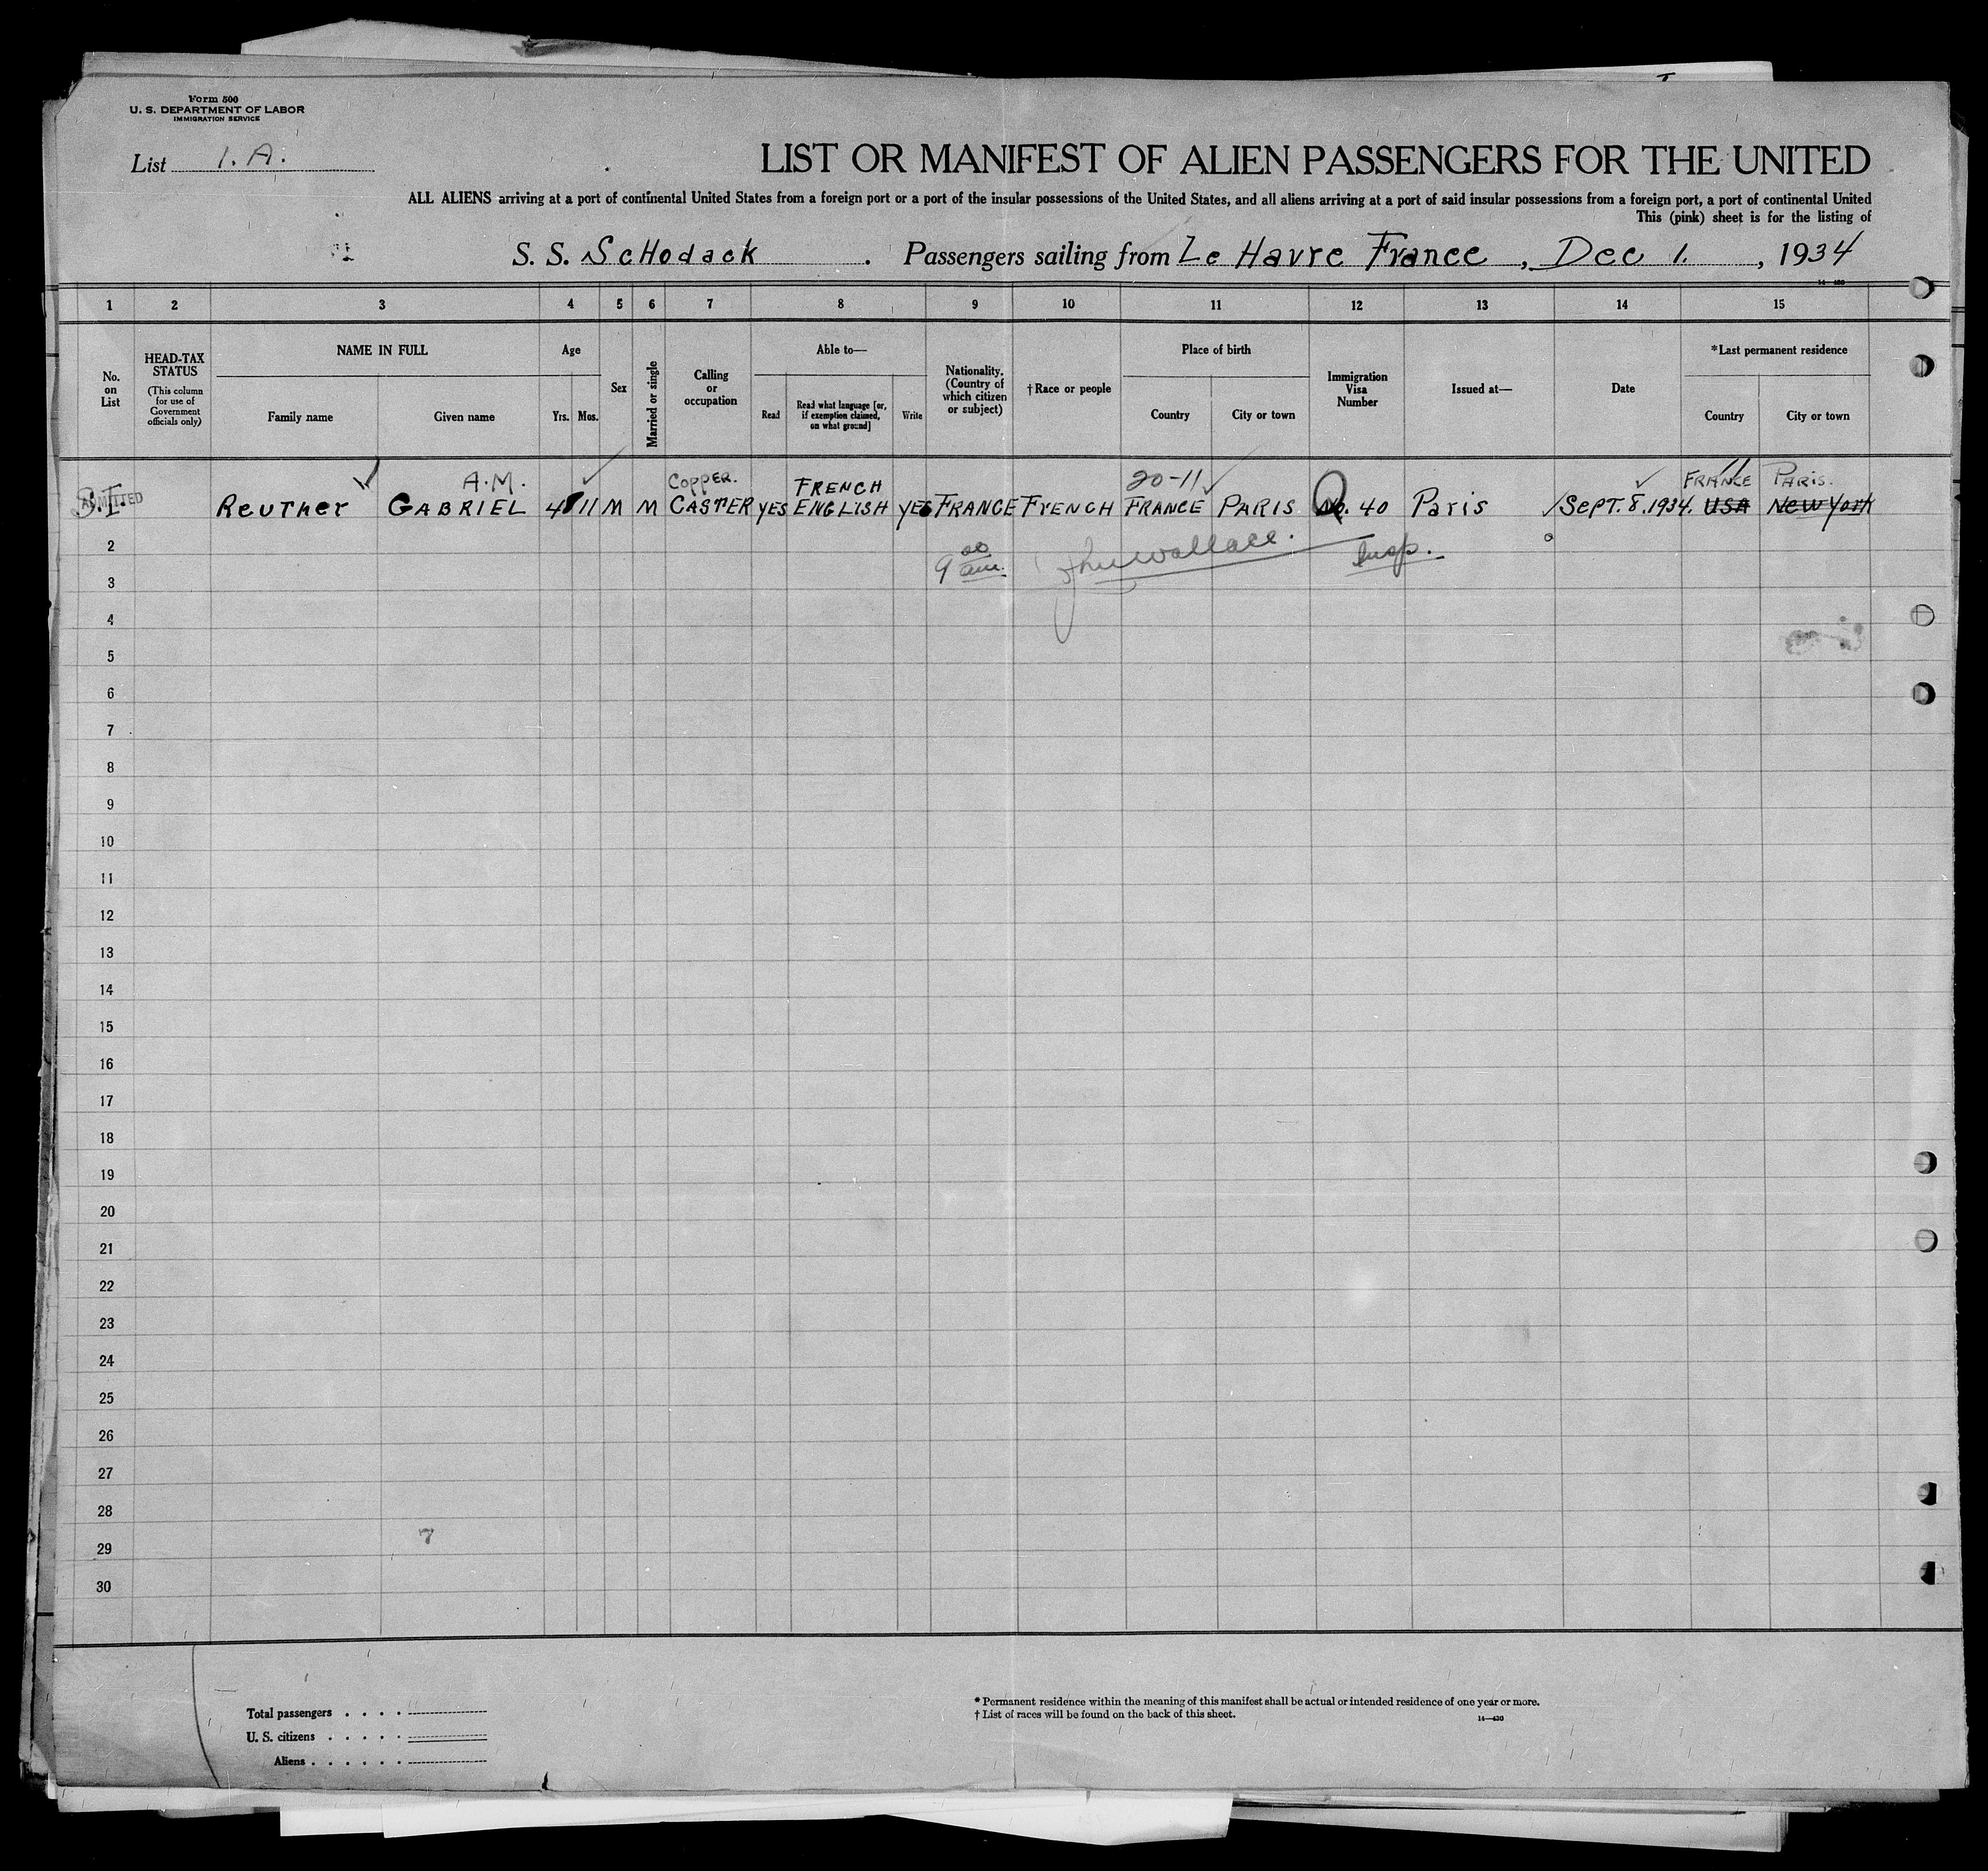 Form 500
U. S. DEPARTMENT OF LABOR
IMMIGRATION SERVICE
List 1. A.
LIST OR MANIFEST OF ALIEN PASSENGERS FOR THE UNITED
ALL ALIENS arriving at a port of continental United States from a foreign port or a port of the insular possessions of the United States, and all aliens arriving at a port of said insular possessions from a foreign port, a port of continental United
This (pink) sheet is for the listing of
S. S. Schodack. Passengers sailing from Le Havre France, Dec 1., 1934
1 2 3 4 5 6 7 8 9 10 11 12 13 14 15
No. on List
HEAD-TAX STATUS
(This column for use of Government officials only)
NAME IN FULL
Family name
Given name
Age
Yrs. Mos.
Sex
Married or single
Calling or occupation
Able to—
Read
Read what language [or, if exemption claimed, on what ground]
Write
Nationality. (Country of which citizen or subject)
†Race or people
Place of birth
Country
City or town
Immigration Visa Number
Issued at—
Date
*Last permanent residence
Country
City or town
A.M. COPPER. FRENCH 20-11 FRANCE PARIS.
S.I. ADMITTED Reuther GABRIEL 11 M M CASTER YES ENGLISH YES FRANCE FRENCH FRANCE PARIS No. 40 Paris SEPT. 8. 1934. USA New York
2
9 00 am. Wallace. Insp.
3
4
5
6
7
8
9
10
11
12
13
14
15
16
17
18
19
20
21
22
23
24
25
26
27
28
7
29
30
Total passengers . . . .
U. S. citizens . . . . .
Aliens . . . . . .
* Permanent residence within the meaning of this manifest shall be actual or intended residence of one year or more.
† List of races will be found on the back of this sheet.
14—430